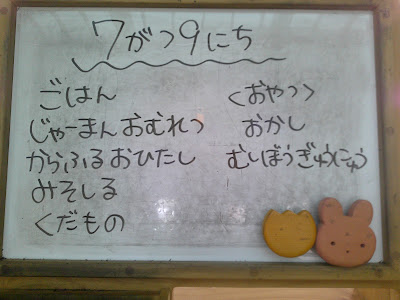 7がつ9にち
ごはん
じゃーまんおむれつ
からふるおひたし
みそしる
くだもの
〈おやつ〉
おかし
むしぼうぎゅうにゅう